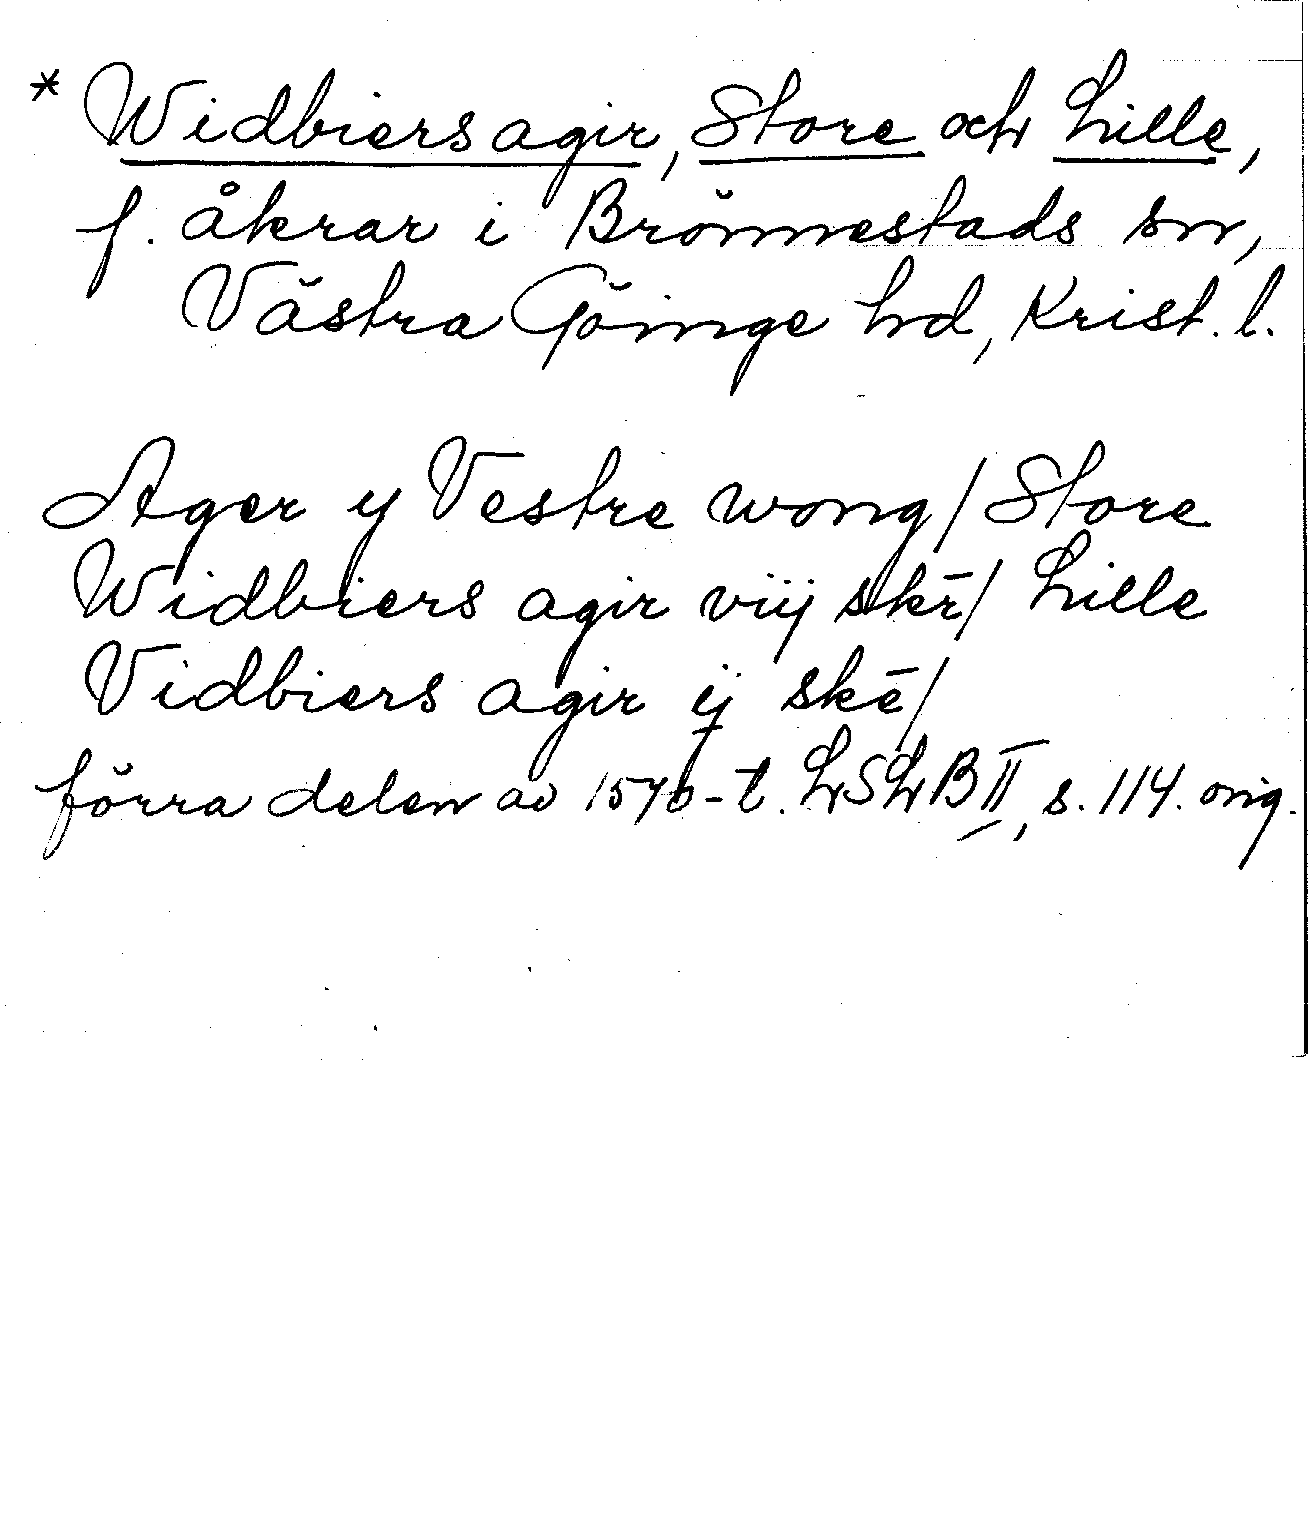 * Widbiers agir, Store och Lille,
f. åkrar i Brönnestads sn,
Västra Göinge hd, Krist. l.
Ager y Vestre wong/ Store
Widbiers agir viij skē/ Lille
Vidbiers agir ij skē/
förra delen av 1570-t. LSLB II, s. 114. orig.